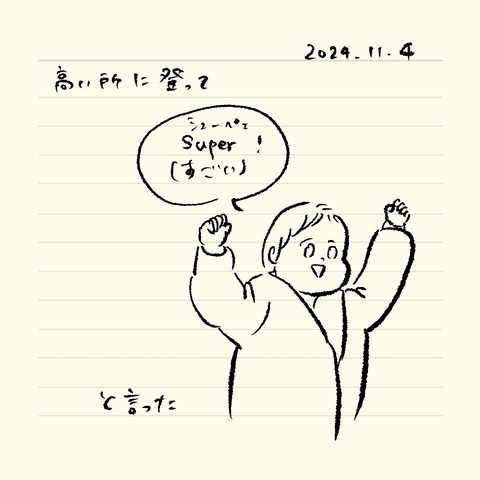 2024.11.4
高い所に登って
シューペぇ
Super!
(すごい)
と言った